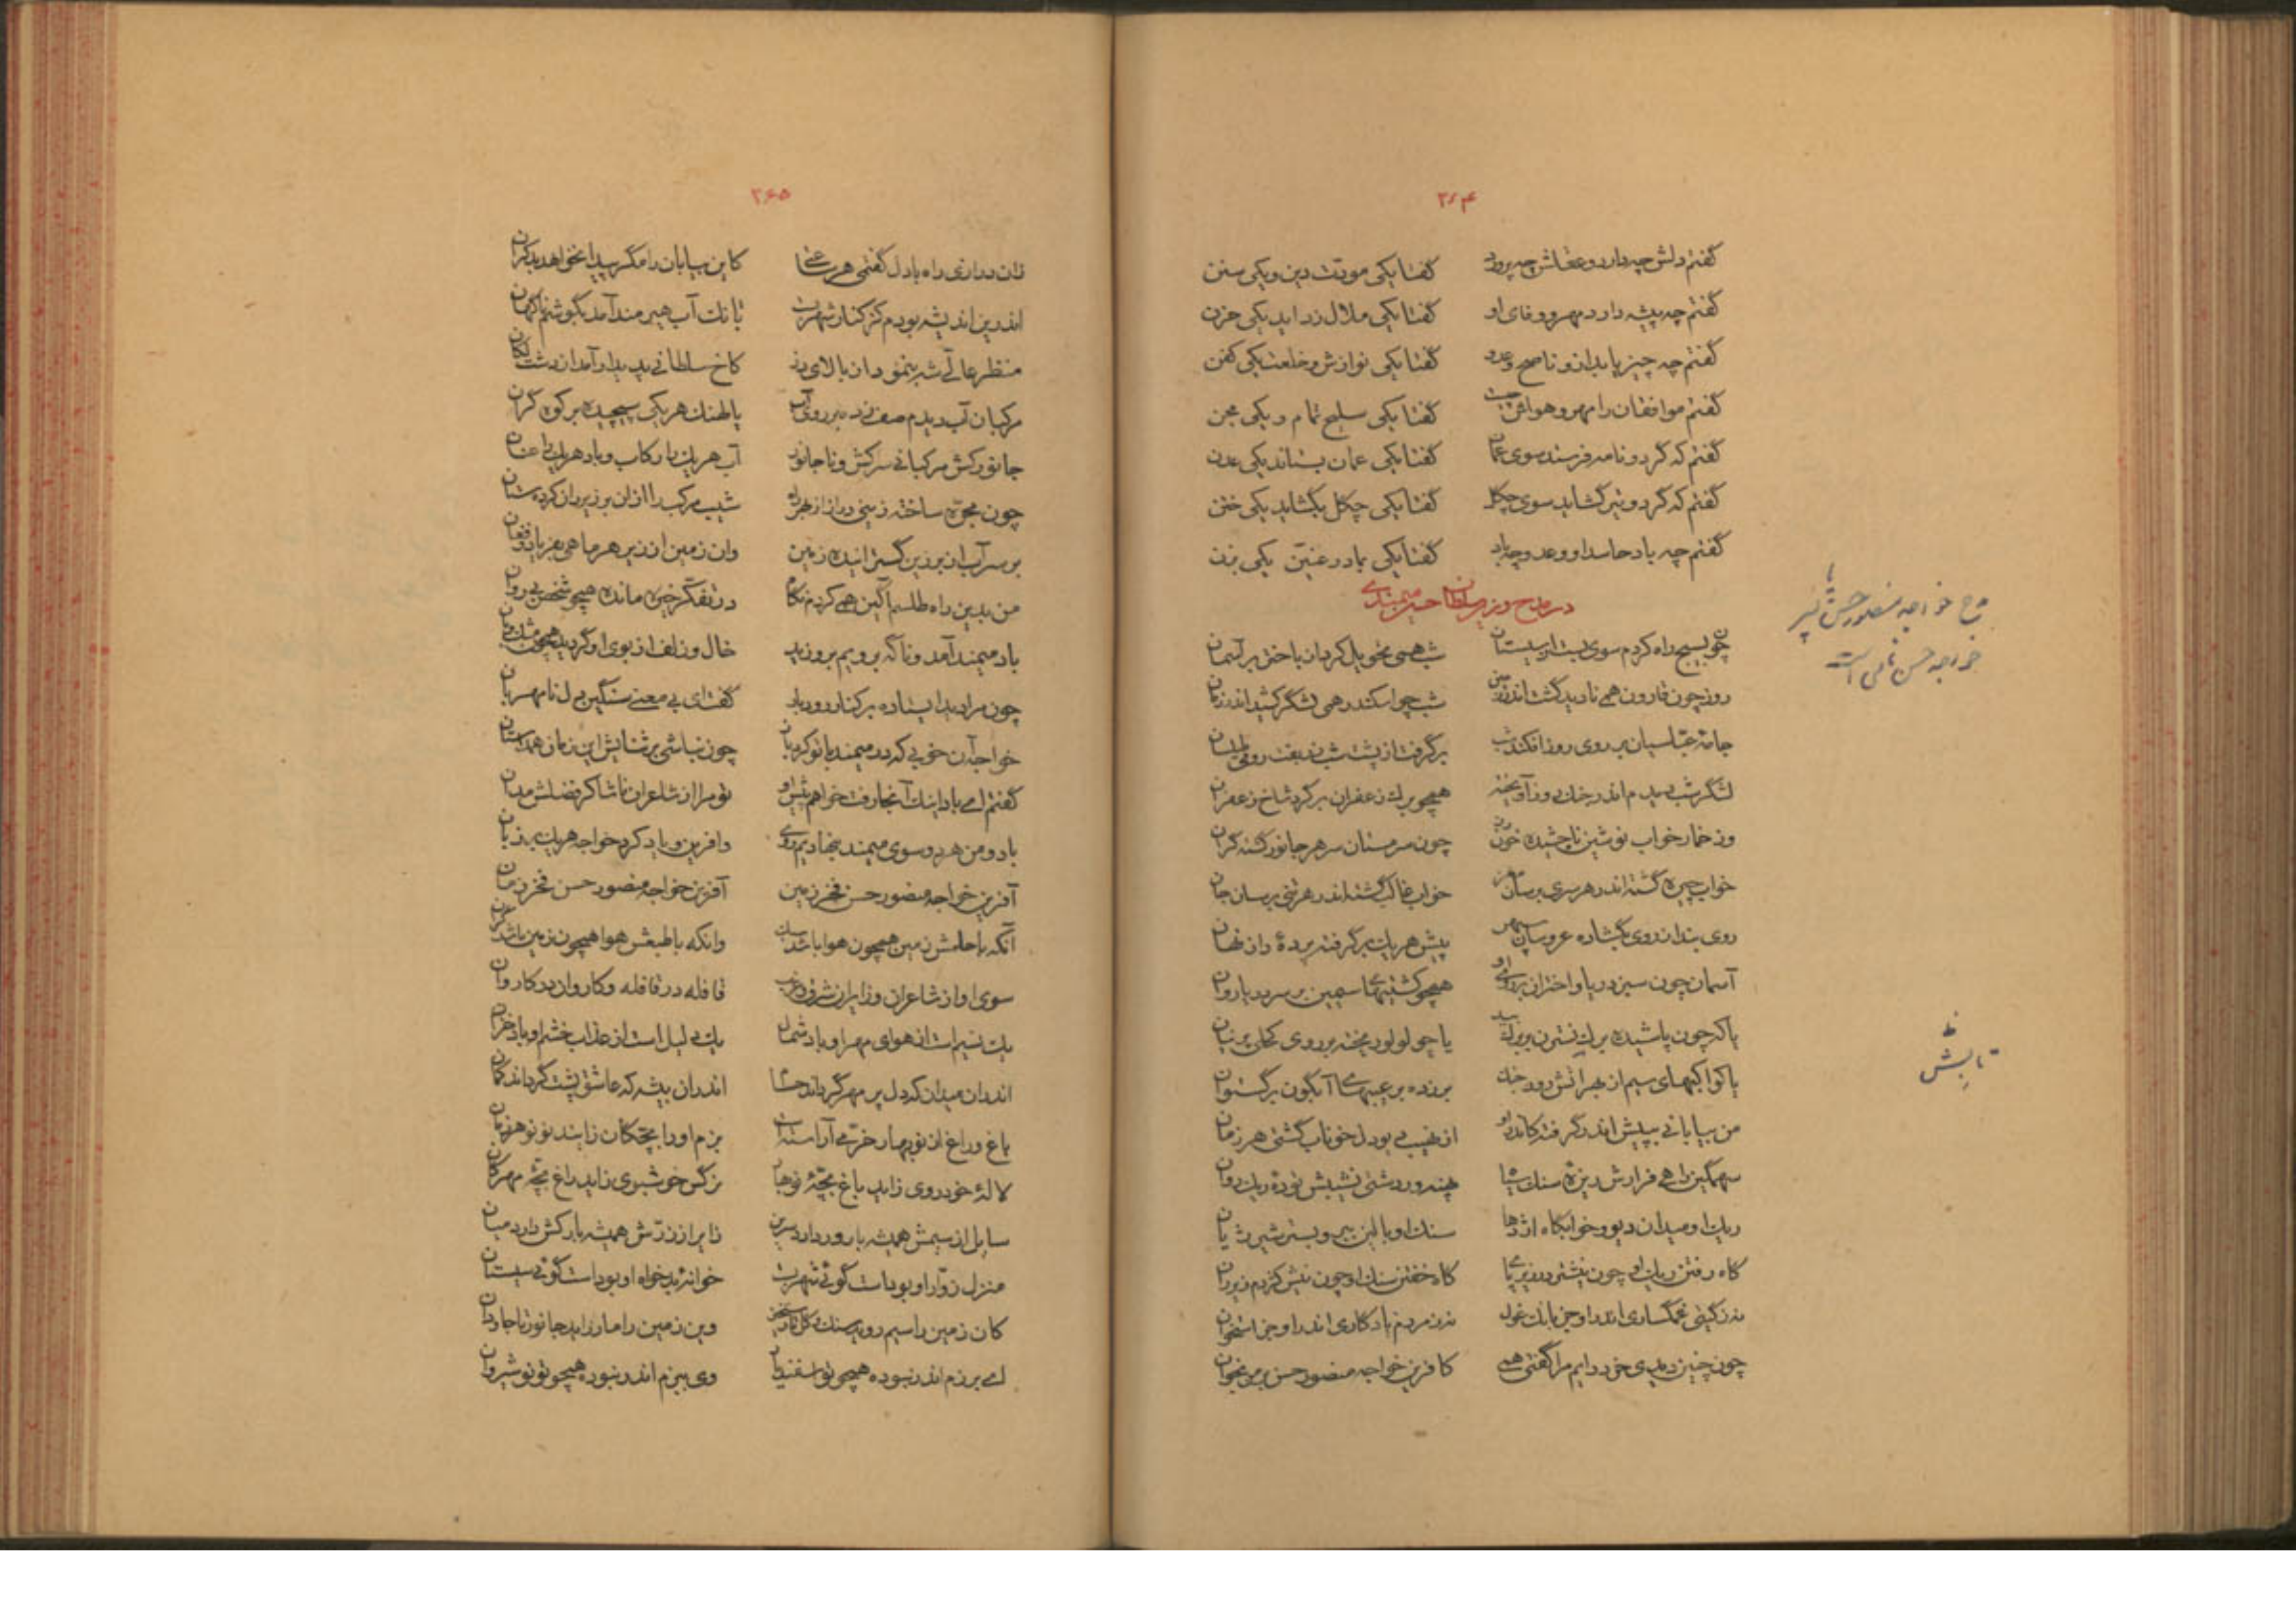 ۲۶۴
گفتم دلش چه دارد و عقلش چه پرورد گفتا یکی مودت دین و یکی سنن
گفتم چه پیشه دارد مهر و وفای او گفتا یکی ملال زداید یکی حزن
گفتم چه چیز یابد ازو ناصح و عدو گفتا یکی نوازش و خلعت یکی کفن
گفتم موافقان را مهر و هواش چیست گفتا یکی سلیح تمام و یکی مجن
گفتم که گر دو نامه فرستد سوی عمان گفتا یکی عمان بستاند یکی عدن
گفتم که گر دو تیر گشاید سوی چگل گفتا یکی چگل بگشاید یکی ختن
گفتم چه باد حاسد او و عدو چه باد گفتا یکی باد رعنین یکی بزن
در مدح وزیر سلطان حسن میمندی
چون بسیج راه کردم سوی بست از سیستان شب همی تحویل کرد از باختر بر آسمان
روز چون قارون همی نادید گشت اندر زمین شب چو اسکندر همی لشگر کشید اندر زمان
جامه عباسیان بر روی روز افکند شب برگرفت از پشت شب زربفت رومی طیلسان
لشگر شب دیدم اندر جنگ روز آویخته همچو برگ زعفران بر گرد شاخ زعفران
وز خمار خواب نوشین ناچشیده خون رز چون سر مستان سر هر جانور گشته گران
خواب چیره گشته اندر هر سری بر سان مغز خواب غالب گشته اندر هر تنی بر سان جان
روی بندان روی بگشاده عروسان سپهر پیش هر یک برگرفته پرده راز نهان
آسمان چون سبز دریا و اختران بر روی او همچو کشتیهای سیمین بر سر دریا روان
یا که چون پاشیده برگ نسترن بر برگ بید یا چو لولو ریخته بر روی کحلی پرنیان
یا کواکبهای سیم از بهر آتش روز جنگ بر زده بر غیبهای آبگون برگستوان
من بیابانی بپیش اندر گرفته کاندرو از نهیب دیو دل خوناب گشتی هر زمان
سهمگین راهی فرازش ریزه سنگ سیاه پهندور دشتی نشیبش توده ریگ روان
ریگ او میدان دیو و خوابگاه اژدها سنگ او بالین ببر و بستر شیر ژیان
گاه رفتن ریگ او چون نیشتر در زیر پای گاه خفتن سنگ او چون نیش کژدم زیر ران
نه ز گیتی غمگساری اندر او جز بانگ غول نه ز مردم یادگاری اندر او جز استخوان
چون چنین دیدی خرد دایم مرا گفتی همی کافرین خواجه منصور حسن بر من بخوان
مدح خواجه منصور حسن یا پسر
خواجه حسن نامی است
تابش
۲۶۵
زان درازی راه با دل گفتمی هر ساعتی کاین بیابان را مگر پیدا نخواهد بد کران
اندرین اندیشه بودم کز کنار شهر بست بانگ آب هیرمند آمد بگوشم ناگهان
منظر عالی شه بنمود از بالای دز کاخ سلطانی پدیدار آمد از دشت لکان
مرکبان آب دیدم صف زده بر روی آب پالهنگ هر یکی پیچیده بر کوه گران
جانور کش مرکبانی سرکش و ناجانور آب هر یک را رکاب و باد هر یک را عنان
چون مجره ساخته زینی دراز از بهر راه شیب مرکب را از ان بر زیر ران کرده ستان
بر سر آب از بر زین گسترانیده زمین وان زمین از زیر هر ماهی بفریاد و فغان
من بدین راه طلسم آگین همی کردم نگاه در تفکر خیره مانده همچو شخص بی روان
باد میمند آمد و ناگه برویم بر وزید خال و زلف از بوی او گردید همچون مشک و بان
چون مرا دید ایستاده بر کنار رود بار گفت ای بی معنی سنگین دل نامهربان
خواجه آن خوبی که در میمند با تو کرد باز چون نباشی بر ثنایش این زمان همداستان
گفتم ای باد اینک آنجا رفت خواهم پیش او تو مرا از شاعران ناشاکر فضلش مدان
باد و من هر دو سوی میمند بنهادیم روی و آفرین و یاد کرد خواجه هر یک بر زبان
آفرین خواجه منصور حسن فخر زمین آفرین خواجه منصور حسن فخر زمان
آنکه با حلمش زمین همچون هوا باشد سبک وانکه با طبعش هوا همچون زمین باشد گران
سوی او از شاعران و زایران شرق و غرب قافله در قافله و کاروان در کاروان
یک نسیم است از هوای مهر او باد شمال یک دلیل است از عذاب خشم او باد خزان
اندران میدان که دل پر مهر گرداند حسام اندران بیشه که عاشق پشت گرداند کمان
باغ و راغ از نوبهار خرمی آراستست بزم او را بچگان زایند نو نو هر زمان
لاله خودروی زاید باغ بچه نوبهار نرگس خوشبوی زاید راغ بچه مهرگان
سایل از سیمش همیشه بارور دارد سرین زایر از زرش همیشه بارکش دارد میان
منزل زوار او بوداست گوئی شهر بست خوانه بدخواه او بوداست گوئی سیستان
کان زمین را سیم روید سنگ و گل تا رستخیز وین زمین را مار زاید جانور تا جاودان
ای برزم اندر نبوده همچو تو اسفندیار وی ببزم اندر نبوده همچو تو نوشیروان